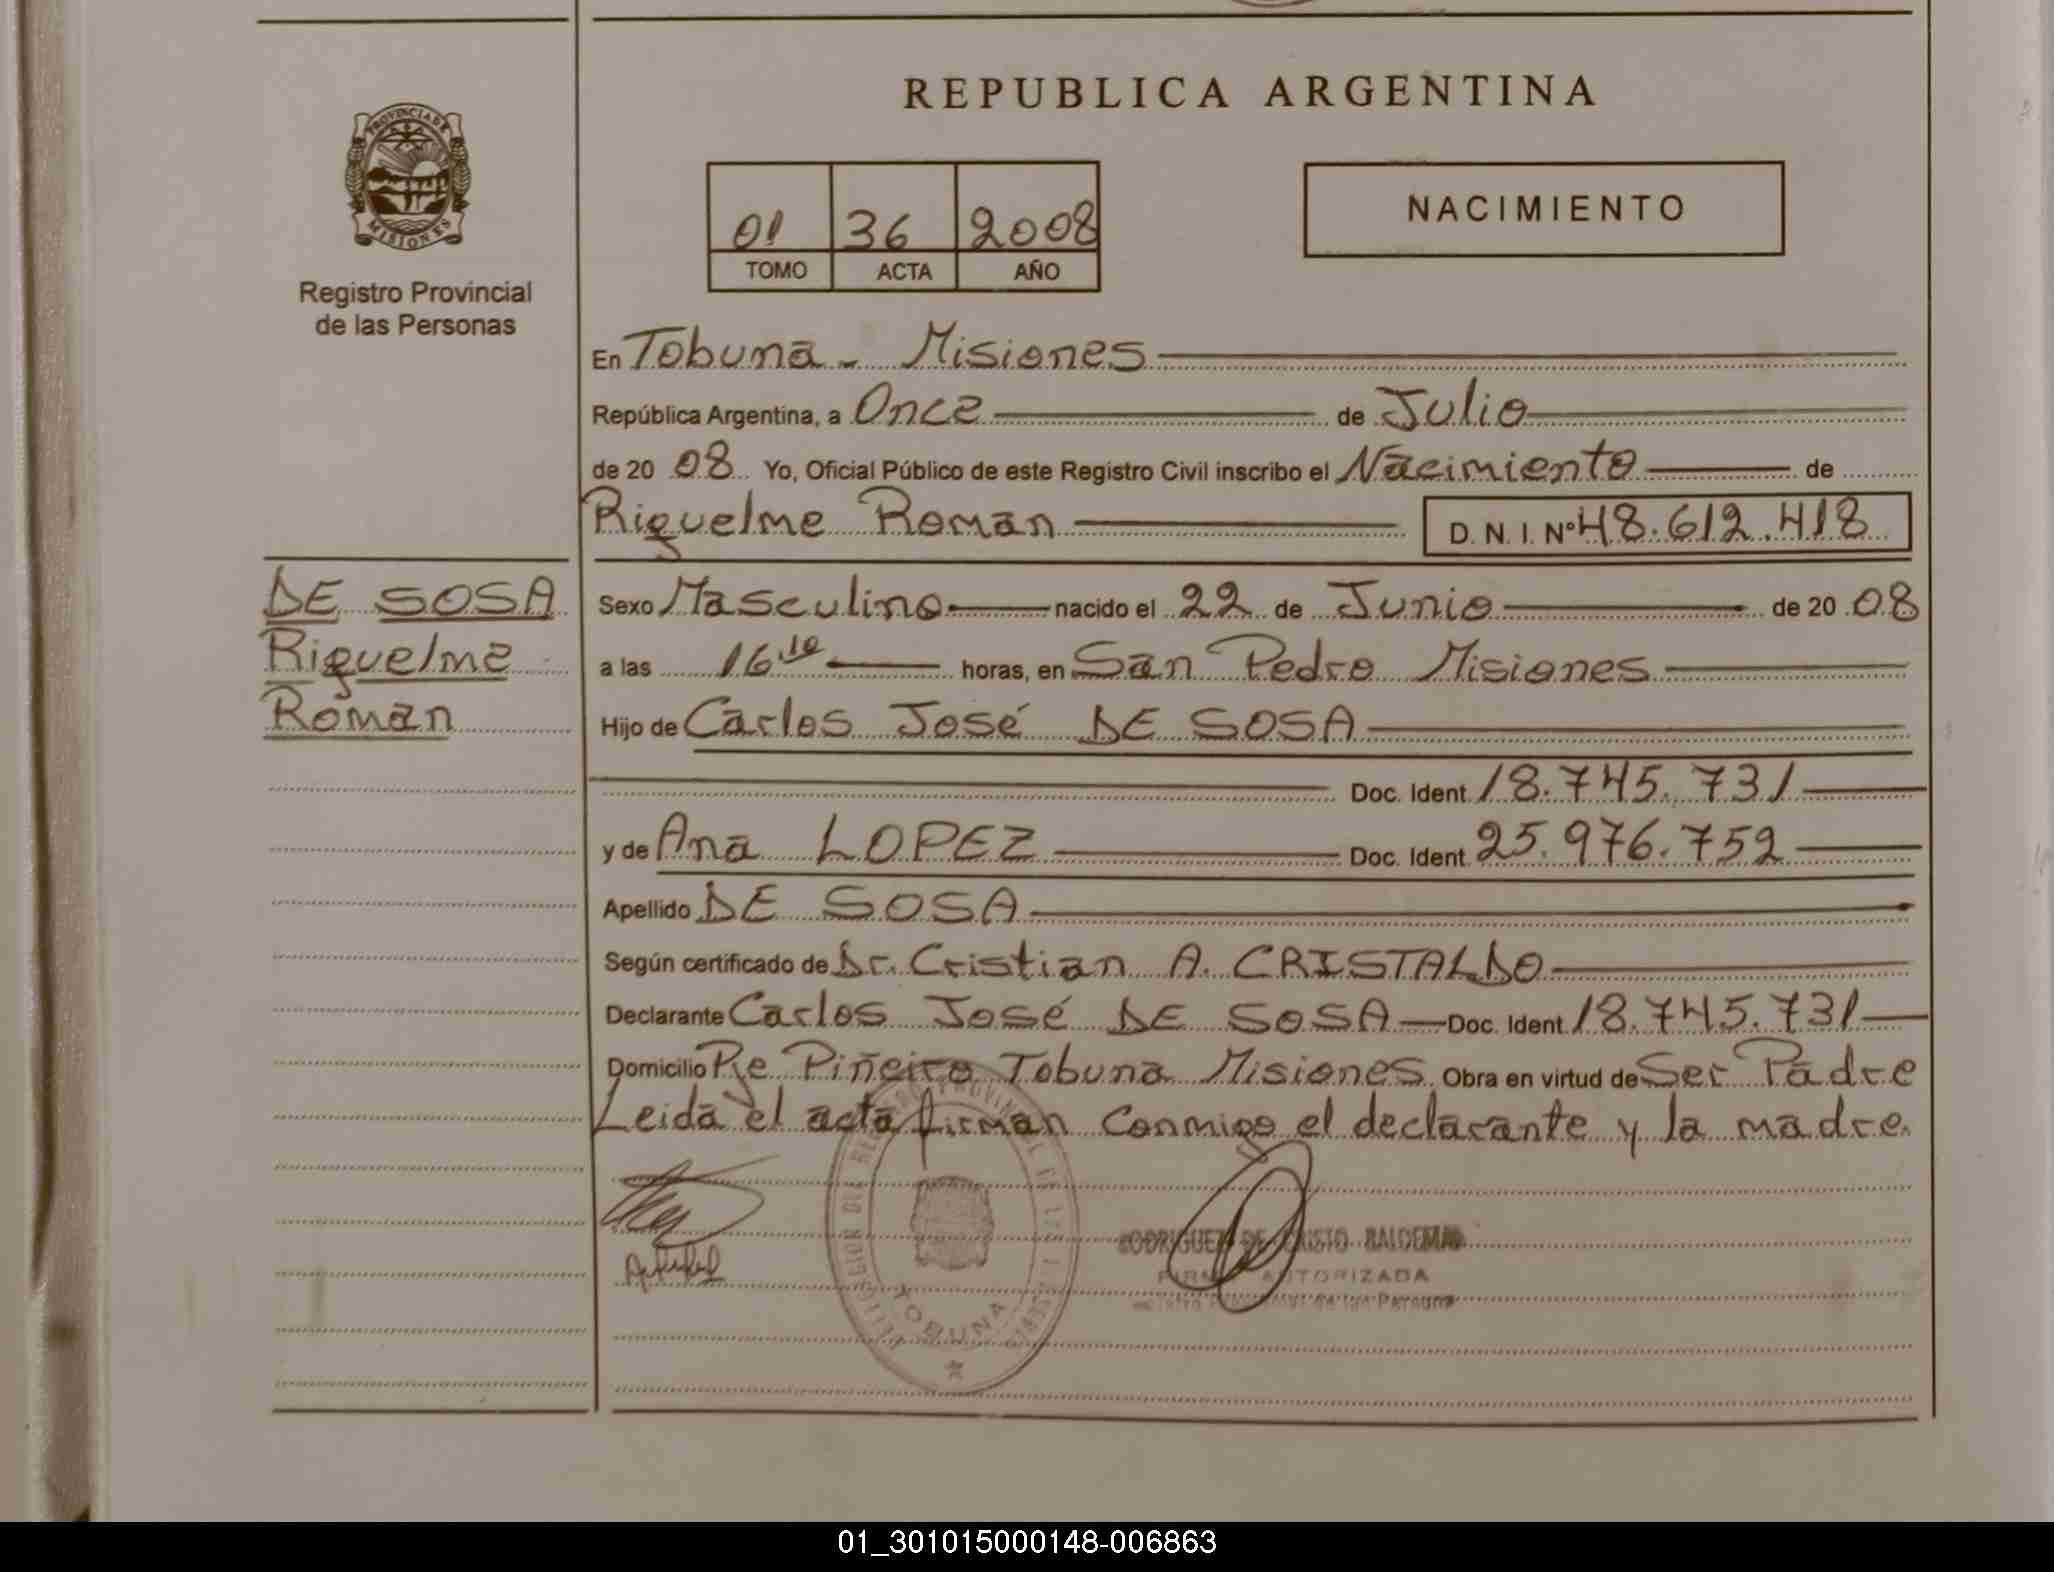 REPUBLICA ARGENTINA
PROVINCIA DE
MISIONES
Registro Provincial
de las Personas
01 36 2008
TOMO ACTA AÑO
NACIMIENTO
En Tobuna - Misiones
República Argentina, a Once de Julio
de 20 08 Yo, Oficial Público de este Registro Civil inscribo el Nacimiento de
Riquelme Roman D. N. I. Nº 48.612.418
DE SOSA
Riquelme
Roman
Sexo Masculino nacido el 22 de Junio de 20 08
a las 16,10 horas, en San Pedro Misiones
Hijo de Carlos José DE SOSA
Doc. Ident 18.745.731
y de Ana LOPEZ Doc. Ident 25.976.752
Apellido DE SOSA
Según certificado de Dr. Cristian A. CRISTALDO
Declarante Carlos José DE SOSA Doc. Ident 18.745.731
Domicilio Pje Piñeiro Tobuna Misiones Obra en virtud de Ser Padre
Leida el acta firman Conmigo el declarante y la madre.
RODRIGUEZ DE CRISTO BALDEMAR
FIRMA AUTORIZADA
de las Personas
TOBUNA
01_301015000148-006863